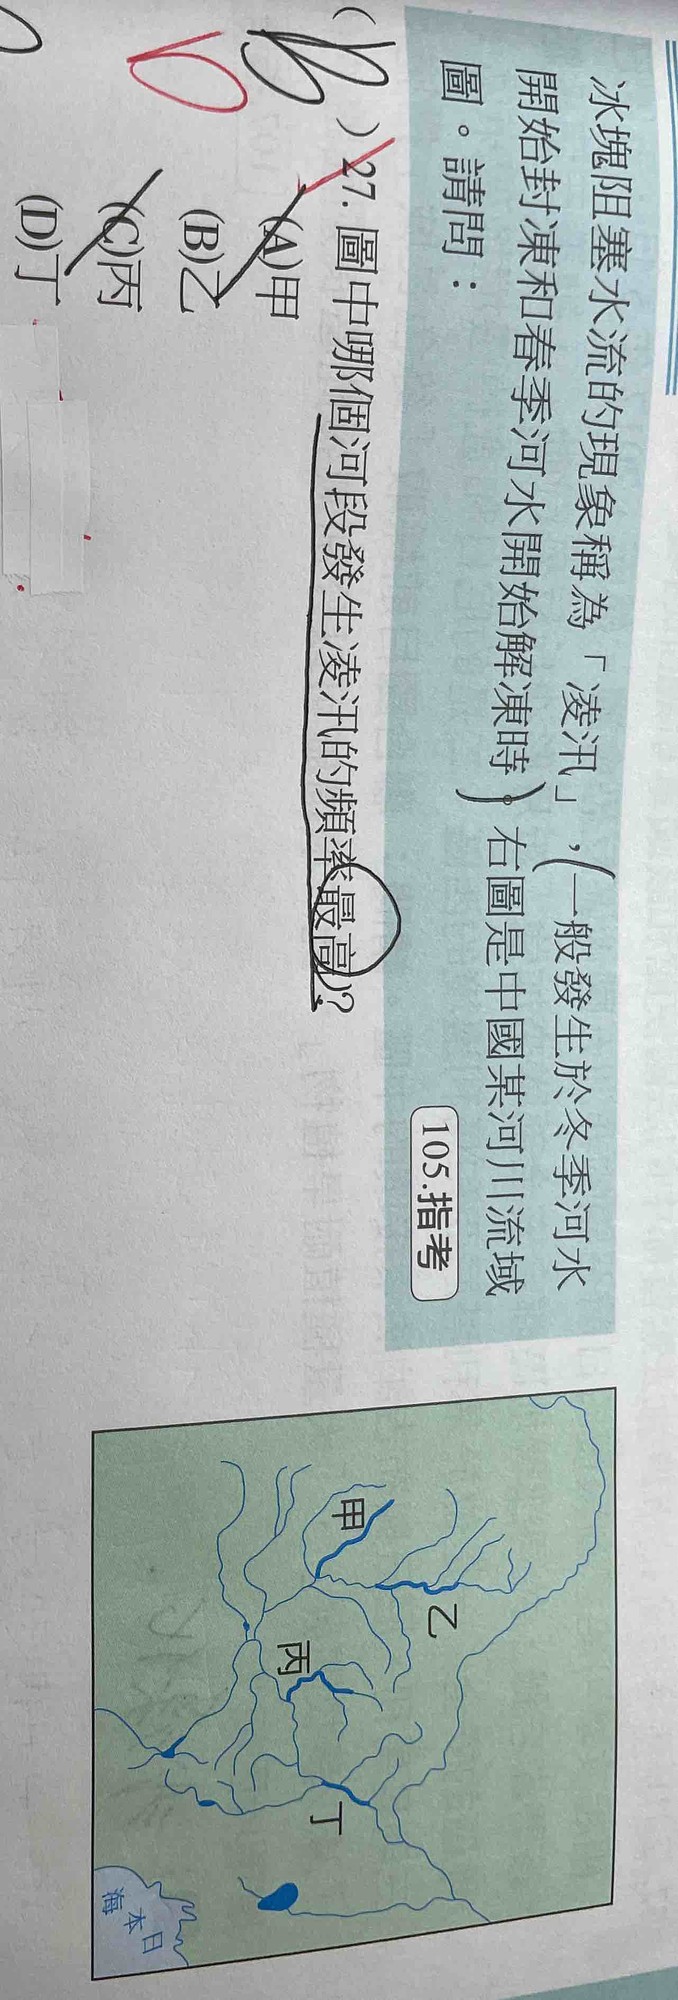 冰塊阻塞水流的現象稱為「凌汛」,(一般發生於冬季河水
開始封凍和春季河水開始解凍時)。右圖是中國某河川流域
圖。請問:
105.指考
( B ) 27. 圖中哪個河段發生凌汛的頻率最高?
(A)甲
(B)乙
(C)丙
(D)丁
甲
乙
丙
丁
日本海